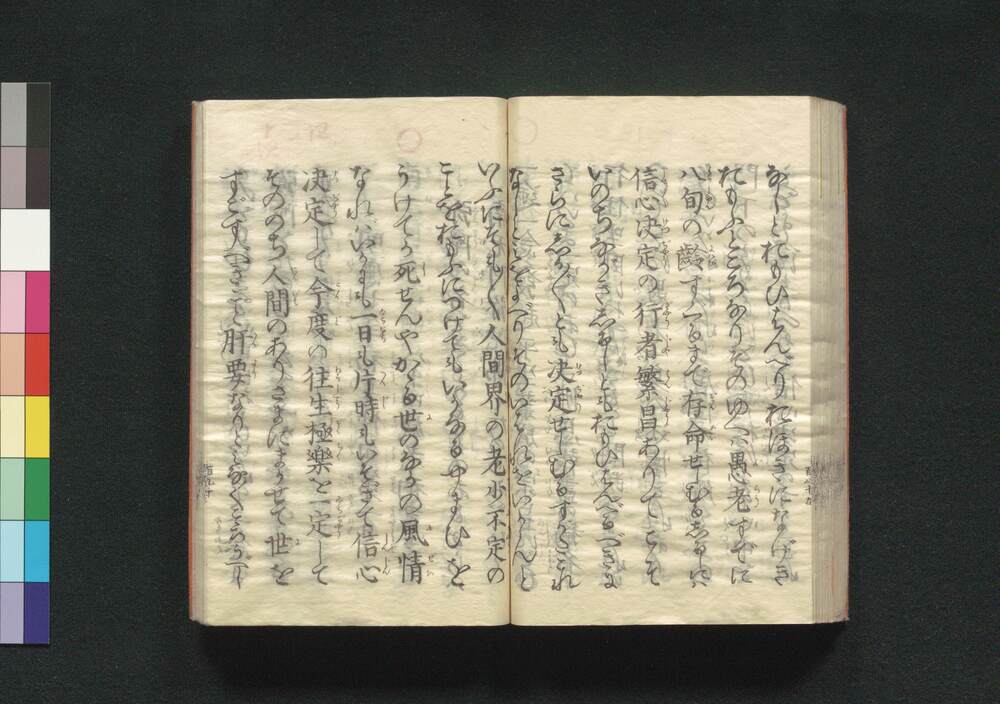 なしとおもひはんへりおほきになげき
おもふところなりそのゆへハ愚老すでに
八旬の齢すくるまで存命せしむるしるしにハ
信心決定の行者繁昌ありてこそ
いのちながきしるしともおもひはんへるべきに
さらにしか〳〵とも決定せしむるすがたこれ
なしとみをよべりそのいはれをいかんと
いふにそも〳〵人間界の老少不定の
ことをおもふにつけてもいかなるやまひを
うけてか死せんやかゝる世のなかの風情
なれハいかにも一日も片時もいそぎて信心
決定して今度の往生極楽を一定して
そのゝち人間のありさまにまかせて世を
すごすべきこと肝要なりとみな〳〵こゝろうへし